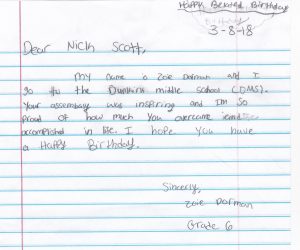 Happy Belated Birthday
3-8-18
Dear Nick Scott,
My name is Zoie Dorman and I
go to the middle school (DMS).
Your assembly was inspiring and I'm so
proud of how much you overcame and
accomplished in life. I hope you have
a Happy Birthday.
Sincerely,
Zoie Dorman
Grade 6